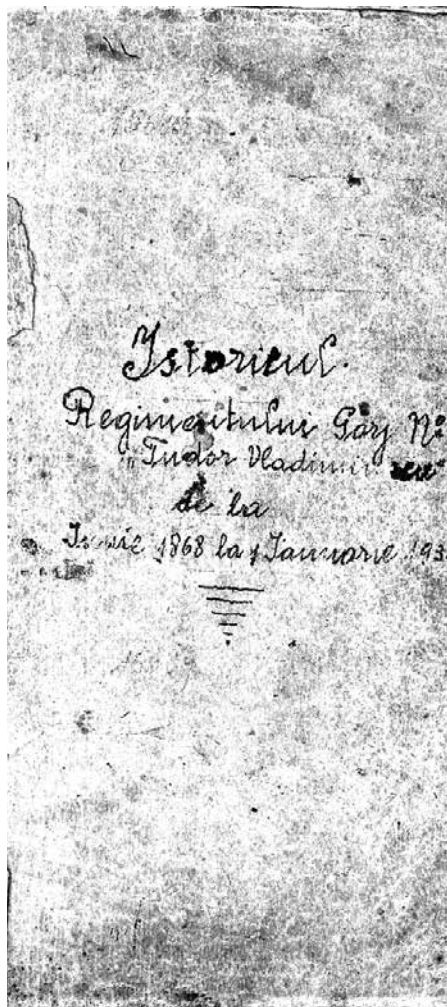 Istoricul.
Regimentului Gorj No
"Tudor Vladimirescu"
de la
Iunie 1868 la 1 Ianuarie 193